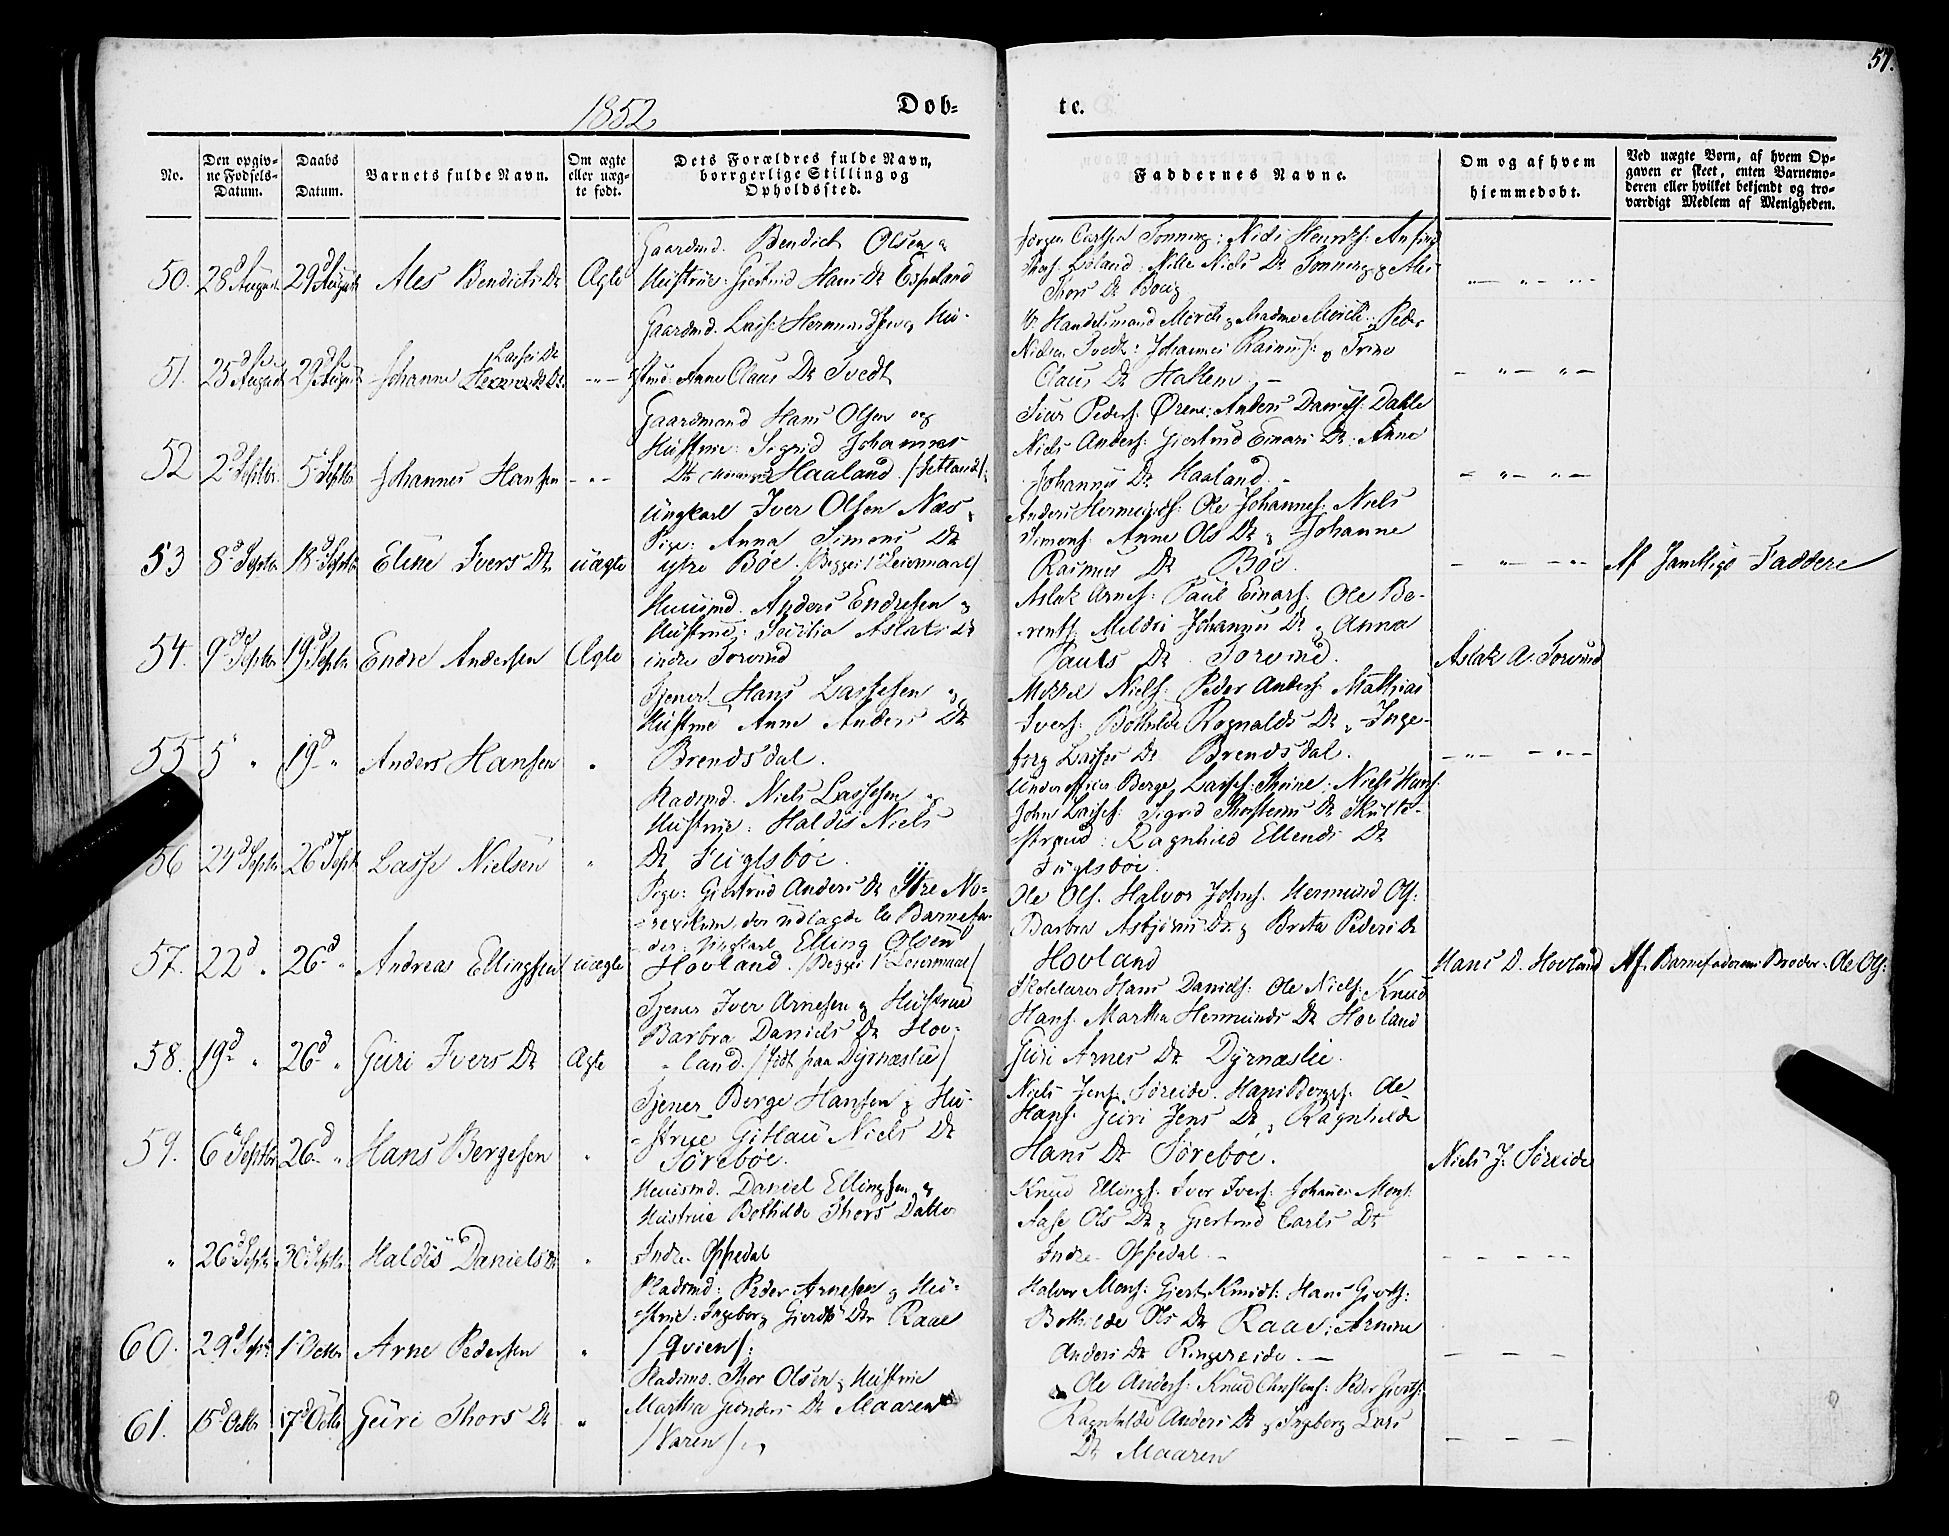 57.
1852
Dob=
te.
No.
Den opgiv-
ne Fødsels-
Datum.
Daabs
Datum.
Barnets fulde Navn.
Om ægte
eller uæg-
te født.
Dets Forældres fulde Navn,
borrgerlige Stilling og
Opholdssted.
Faddernes Navne.
Om og af hvem
hjemmedøbt.
Ved uægte Børn, af hvem Op-
gaven er skeet, enten Barnemo-
deren eller hvilket bekjendt og tro-
værdigt Medlem af Menigheden.
50. 28d August 29d August Ales Bendicts Dr Ægte
Gaardmd. Bendict Olsen &
Hustrue: Giertrud Hans Dr Espeland
Jørgen Carlsen Tonning: Nicls Henriks:
Thors: Løland: Nille Niels Dr Tonning & Ales
Thors Dr Boug
51. 25d August 29d August Johanne Lasses Dr
Gaardmd. Lass: Hermundsen & Hu-
strue Anne Claus Dr Tvedt
Handelsmand Moritz & Madme Moritz: Peder
Nielsen Tvedt: Johannes Rasmus: & Trine
Claus Dr Hallem
52 2d Septbr. 5d Septbr Johannes Hansen
Gaardmand Hans Olsen og
Hustrue: Sigrid Johannes
Dr Haaland /Jetland/
Siur Peders: Ørene: Anders Daniels: Dahle
Niels Anders: Giertrud Einars Dr: Anne
Johannes Dr Haaland.
53 8d Septbr 18d Septbr Eline Ivers Dr uægte
Ungkarl Iver Olsen Næs
Pige: Anna Simons Dr
ytre Böe. /Begges 1ste Leiermaal/
Anders Hermunds: Ole Johannes: Niels
Simons: Anne Ols Dr & Johanne
Rasmus Dr Böe.
Af Samtlige Faddere
54. 9d Septbr 19d Septbr Endre Andersen Ægte
Huusmd. Anders Endresen &
Hustrue: Secilia Aslaks Dr
indre Torvind
Aslak Arnes: Paul Einars: Ole Be-
rents: Mildri Johannes Dr & Anna
Pauls Dr Torvind.
Aslak A. Torvind
55 5 " 19d " Anders Hansen "
Tjener Hans Lassesen &
Hustrue Anne Anders Dr
Brendsdal.
Mikkel Niels: Peder Anders: Mathias
Ivers: Bothilde Ragnalds Dr & Inge-
borg Lasses Dr Brendsdal.
56 24d Septbr 26d Septb Lasse Nielsen "
Pladsmd. Niels Lassesen &
Hustrue: Haldis Niels
Dr Fuglsböe.
Underofficer Berge Lasses: Niels Hans:
John Lasses: Sigrid Thorsteins Dr Skulte-
strand: Ragnhild Ellends Dr
Fuglsböe.
57. 22d " 26d " Andreas Ellingsen uægte
Pige: Giertrud Anders Dr Ytre No-
revikum, der udlagde til Barnefa-
der: Ungkarl Elling Olsen
Hovland. /Begges 1ste Leiermaal/
Ole Ols: Halvor Johns: Hermund Ols:
Barbra Asbjörns Dr & Brita Peders Dr
Hovland
Hans D. Hovland
Af Barnefaderens Broder Ole Ols:
58. 19d " 26d " Guri Ivers Dr Ægte
Tjener Iver Arnesen & Hustrue
Barbra Daniels Dr Hov-
land. /födt paa Dyrnæslie/
Skolelærer Hans Daniels: Ole Niels: Knud
Hans: Martha Hermunds Dr Hovland
Guri Arnes Dr Dyrnæslie.
59. 6te Septbr 26d " Hans Bergesen "
Tjener Berge Hansen & Hu-
strue Gitlau Niels Dr
Söreböe.
Niels Jens: Søreide: Hans Berges: Ole
Hans: Guri Jens Dr & Ragnhilde
Hans Dr Söreböe.
Niels J. Søreide
" 26d Septbr 30d Septbr Haldis Daniels Dr "
Huusmd. Daniel Ellingsen &
Hustrue Bothilde Thors Datter
Indre Oppedal
Knud Ellings: Iver Ivers: Johannes Mons:
Aase Ols Dr & Giertrud Carls Dr
Indre Oppedal.
60. 29d Septbr 1ste Octbr Arne Pedersen "
Pladsmd: Peder Arnesen & Hu-
strue: Ingeborg Gierts Dr Raae
/Qvien/:
Halvor Mons: Giert Knuds: Hans Gierts:
Bothilde Ols Dr Raae: Arnine
Anders Dr Ringereide.
61. 15d Octbr 17d Octbr Guri Thors Dr "
Pladsms. Thor Olsen & Hustrue
Martha Gunders Dr Maaren
/Varen/
Ole Anders: Knud Christens: Peder Gierts:
Ragnhilde Anders Dr & Ingeborg Lars
Dr Maaren